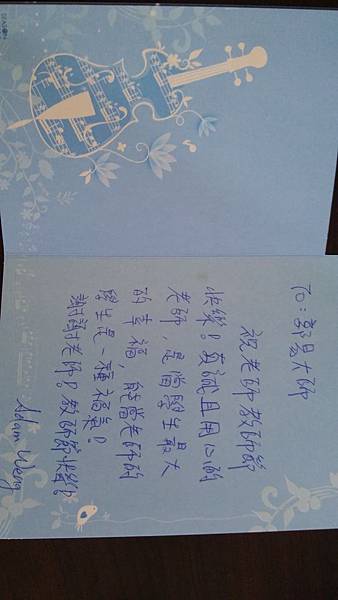 SEASON
To: 郭大師
祝老師教師節
快樂!真誠且用心的
老師,是當學生最大
的幸福,能當老師的
學生是一種福氣!
謝謝老師!教師節快樂!
Adam Weng